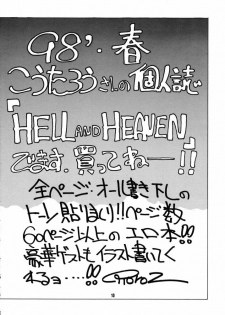 98'・春
こうたろうさんの個人誌
「HELL AND HEAVEN」
でます.買ってねー!!
全ページ・オール書き下しの
トーン貼りまくり!!ページ数
60ページ以上のエロ本!!
豪華ゲストもイラスト書いてく
れるョ…!!